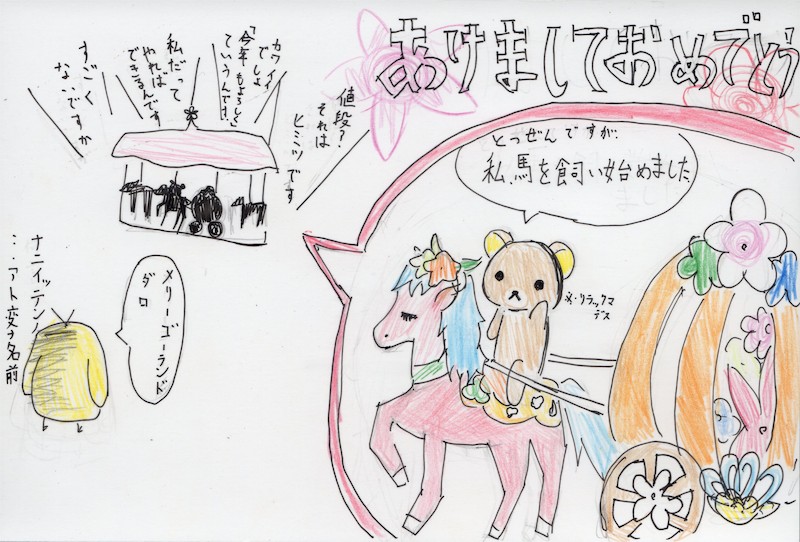 あけましておめでとう
とつぜんですが、
私、馬を飼い始めました
※・リラックマ
デス
値段？
それは
ヒミツです
カワイイ
でしょ
「今年もよろしく」
ていうんです。
私だって
やれば
できるんです
すごく
ないですか
メリーゴーランド
ダロ
ナニイッテンノ
：：アト変ナ名前